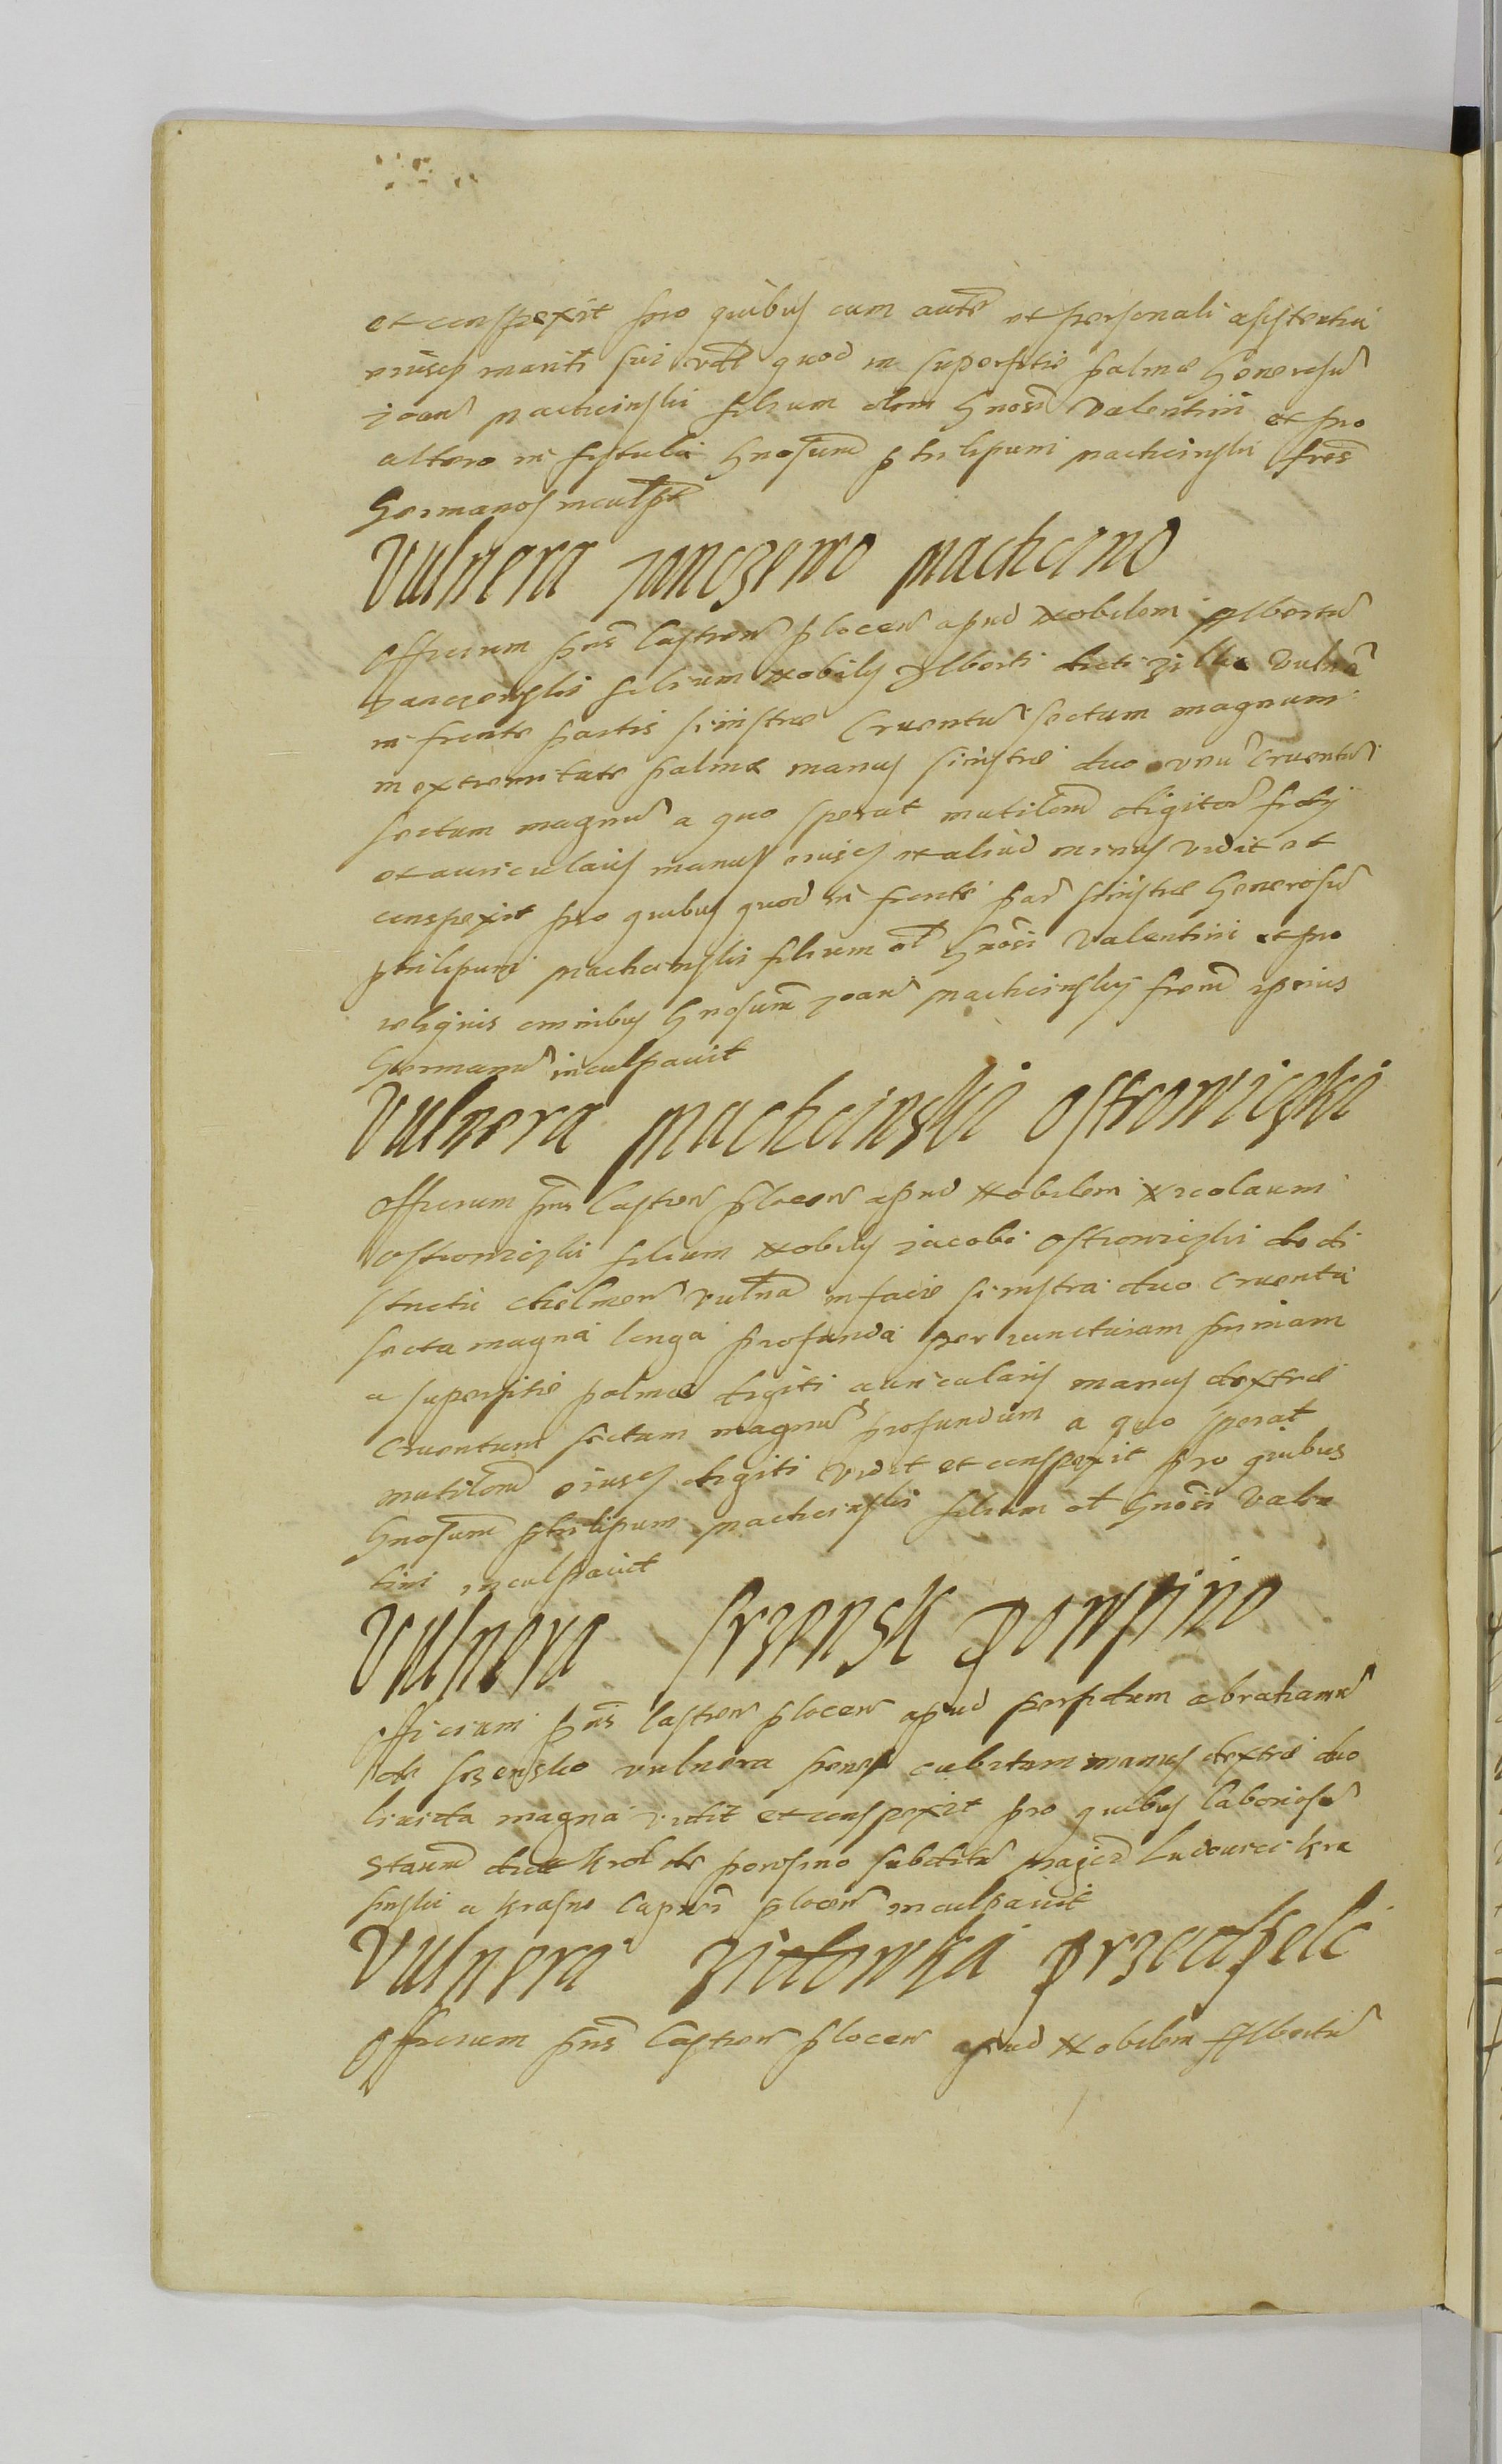 et conspexit pro quibus cum aut͠e et personali assistentia
eiusq mariti sui vdl quod in superfitie palmæ Generosu͂
Joan͂ machcinski filium olim Gnosi͂ Valentini et pro
altero in fistula Gnosum͂ philipum machcinski fres͂
Germanos inculpt͂
Vulnera Janczewo machcino
Officium pns͂ Castren͂ plocen͂ apud Nobilem Albertu͂
Janczewski filium Nobilis Alberti dicti vulnera͂
in fronte partis sinistræ Cruentu͂ sectum magnum
in extremitate palmæ manus sinistræ duo unu͂ Cruentu͂
sectum magnu͂ a quo sperat mutilom͂ digitor͂
et auricularis manus eiusq et aliud minus vidit et
conspexit pro quibus quod in fronte par͂ sinistræ Generosu͂
philipum machcinski filium ol͂ Gnosi͂ Valentini et pro
reliquis omnibus Gnosum͂ Joan͂ machcinsky frem͂ ipsius
Germanu͂ inculpavit
Vulnera machcinski ostrowiczki
Officium pns͂ Castren͂ plocen͂ apud Nobilem Nicolaum
Ostrowiczki filium Nobilis Jacobi Ostrowiczki de di
strictu chelmen͂ vulna͂ in facie sinistra duo Cruenta
secta magna longa profunda per iuncturam primam
a superfitie palmæ digiti auricularis manus dextræ
Cruentum sectum magnu͂ profundum a quo sperat
mutilom͂ eiusq digiti vidit et conspexit pro quibus
Gnosum͂ philipum machcinski filium ol͂ Gnosi͂ Valen
tini inculpavit
Vulnera Srzensk porssino
Officium pns͂ Castren͂ plocen͂ apud perfidum abrahamu͂
de srzensko vulnera penes cubitum manus dextræ duo
livida magna vidit et conspexit pro quibus laboriosu͂
Stanm͂ dict Krol de porssino subditu͂ magci͂ Ludovici Kra
sinski a krasne Captnei͂ plocen͂ inculpavit
Vulnera przedpelc
Officium pns͂ Castren͂ plocen͂ apud Nobilem Albertu͂